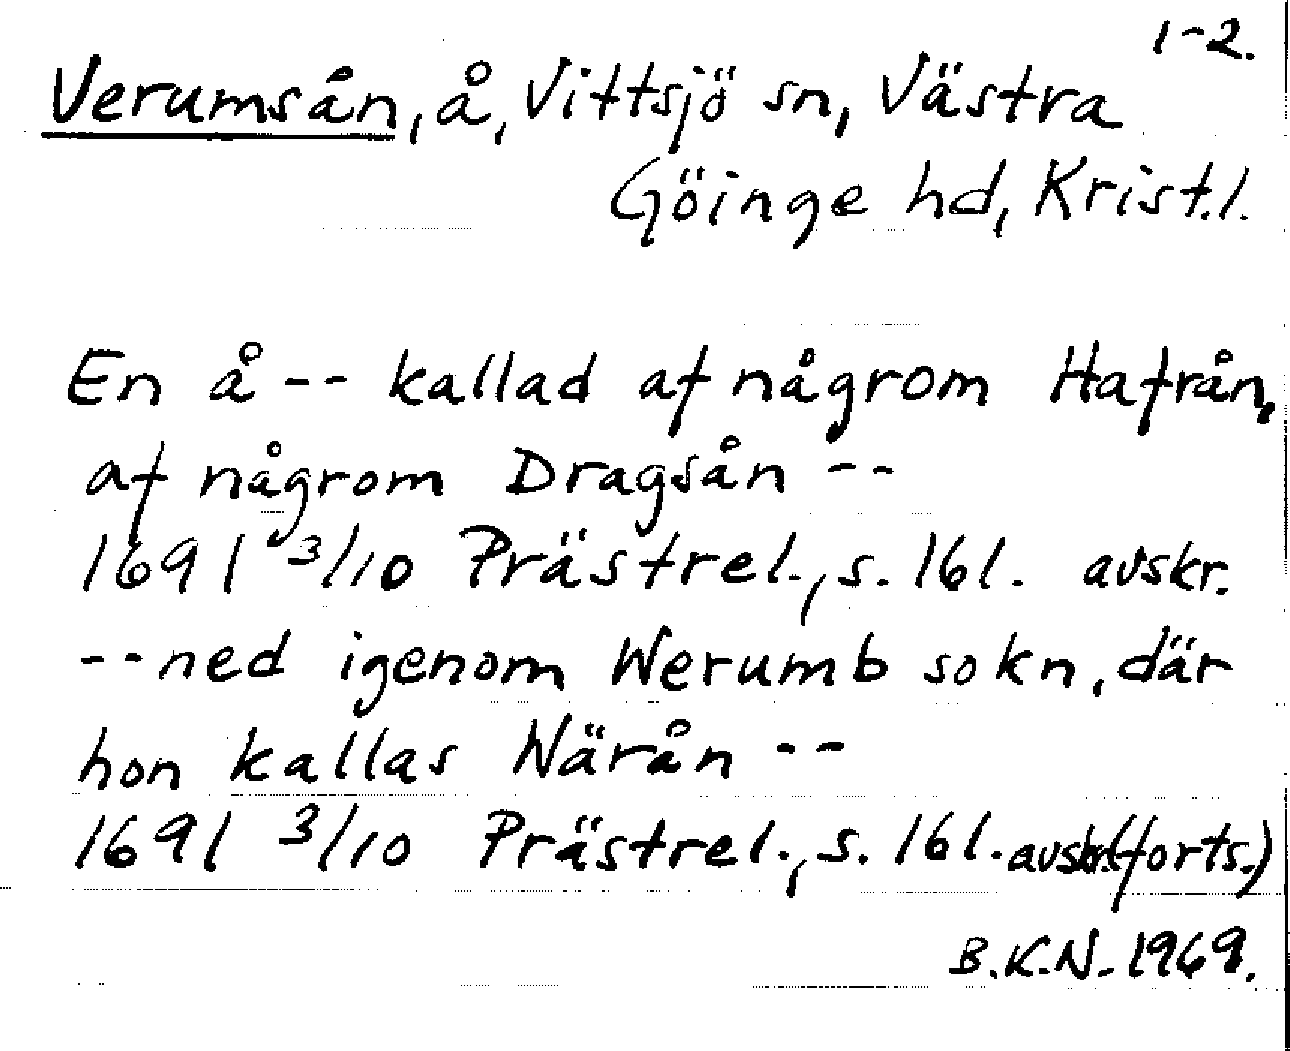 1-2.
Verumsån, å, Vittsjö sn, Västra
Göinge hd, Krist.l.
En å -- kallad af någrom Hafrån,
af någrom Dragsån --
1691 3/10 Prästrel., s. 161. avskr.
-- ned igenom Werumb sokn, där
hon kallas Wärån --
1691 3/10 Prästrel., s. 161. avskr. (forts.)
B.K.N. 1969.